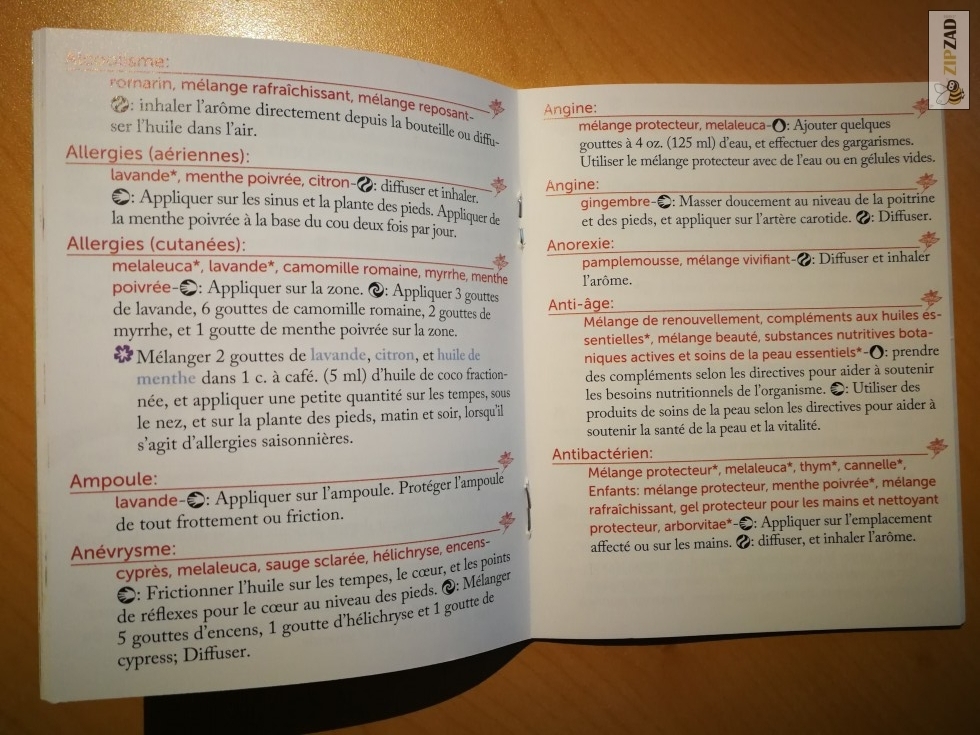 romarin, mélange rafraîchissant, mélange reposant-
: inhaler l'arôme directement depuis la bouteille ou diffu-
ser l'huile dans l'air.
Allergies (aériennes):
lavande*, menthe poivrée, citron-: diffuser et inhaler.
: Appliquer sur les sinus et la plante des pieds. Appliquer de
la menthe poivrée à la base du cou deux fois par jour.
Allergies (cutanées):
melaleuca*, lavande*, camomille romaine, myrrhe, menthe
poivrée-: Appliquer sur la zone. : Appliquer 3 gouttes
de lavande, 6 gouttes de camomille romaine, 2 gouttes de
myrrhe, et 1 goutte de menthe poivrée sur la zone.
Mélanger 2 gouttes de lavande, citron, et huile de
menthe dans 1 c. à café. (5 ml) d'huile de coco fraction-
née, et appliquer une petite quantité sur les tempes, sous
le nez, et sur la plante des pieds, matin et soir, lorsqu'il
s'agit d'allergies saisonnières.
Ampoule:
lavande-: Appliquer sur l'ampoule. Protéger l'ampoule
de tout frottement ou friction.
Anévrysme:
cyprès, melaleuca, sauge sclarée, hélichryse, encens-
: Frictionner l'huile sur les tempes, le cœur, et les points
de réflexes pour le cœur au niveau des pieds. : Mélanger
5 gouttes d'encens, 1 goutte d'hélichryse et 1 goutte de
cypress; Diffuser.
Angine:
mélange protecteur, melaleuca-: Ajouter quelques
gouttes à 4 oz. (125 ml) d'eau, et effectuer des gargarismes.
Utiliser le mélange protecteur avec de l'eau ou en gélules vides.
Angine:
gingembre-: Masser doucement au niveau de la poitrine
et des pieds, et appliquer sur l'artère carotide. : Diffuser.
Anorexie:
pamplemousse, mélange vivifiant-: Diffuser et inhaler
l'arôme.
Anti-âge:
Mélange de renouvellement, compléments aux huiles es-
sentielles*, mélange beauté, substances nutritives bota-
niques actives et soins de la peau essentiels*-: prendre
des compléments selon les directives pour aider à soutenir
les besoins nutritionnels de l'organisme. : Utiliser des
produits de soins de la peau selon les directives pour aider à
soutenir la santé de la peau et la vitalité.
Antibactérien:
Mélange protecteur*, melaleuca*, thym*, cannelle*,
Enfants: mélange protecteur, menthe poivrée*, mélange
rafraîchissant, gel protecteur pour les mains et nettoyant
protecteur, arborvitae*-: Appliquer sur l'emplacement
affecté ou sur les mains. : diffuser, et inhaler l'arôme.
ZIPZAD